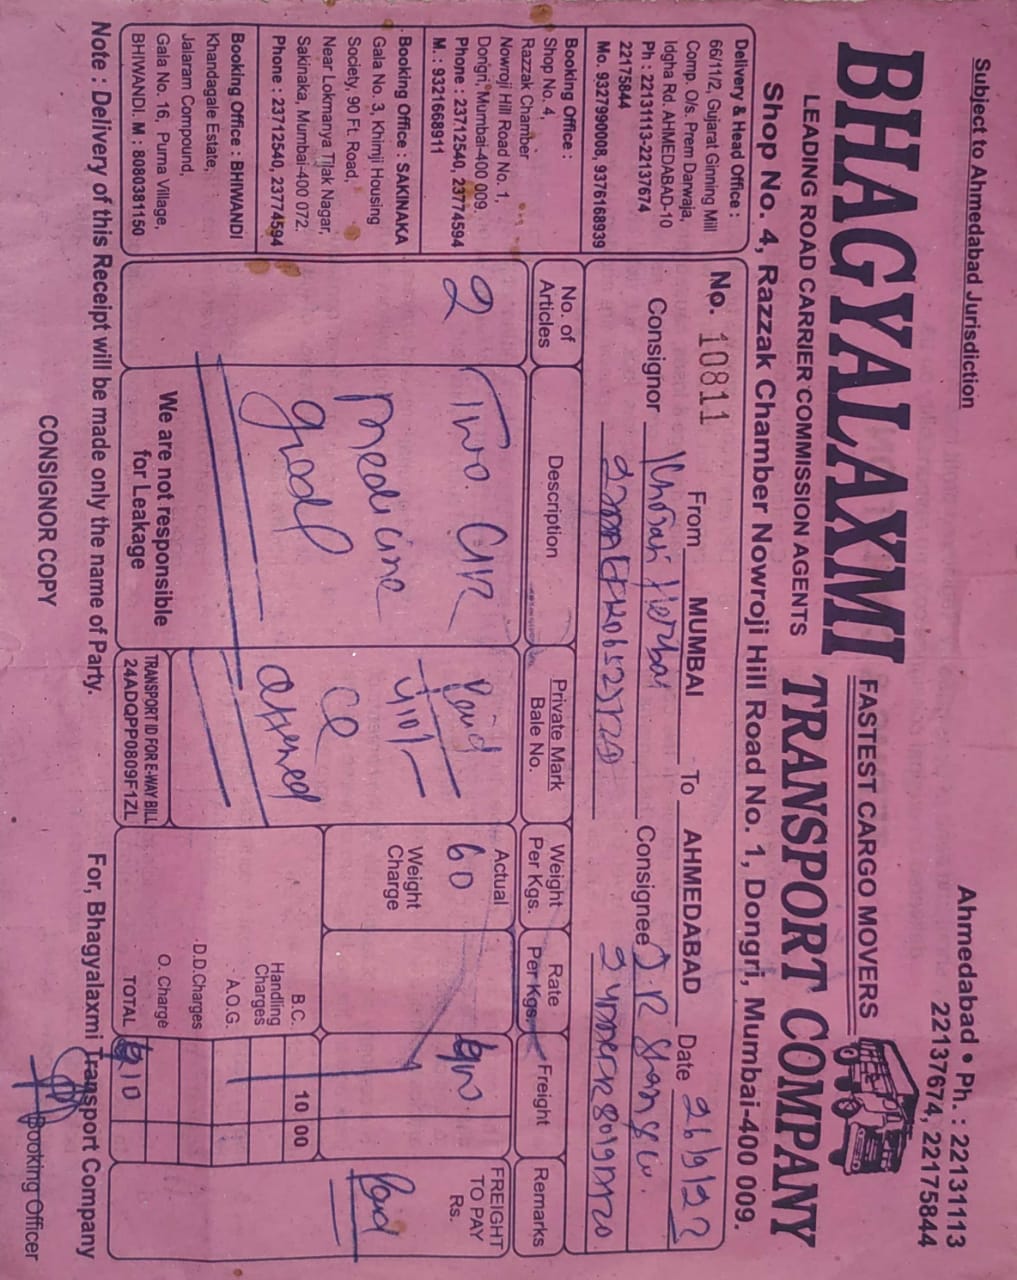 Subject to Ahmedabad Jurisdiction
Ahmedabad • Ph. : 22131113
22137674, 22175844
BHAGYALAXMI
FASTEST CARGO MOVERS
TRANSPORT COMPANY
LEADING ROAD CARRIER COMMISSION AGENTS
Shop No. 4, Razzak Chamber Nowroji Hill Road No. 1, Dongri, Mumbai-400 009.
Delivery & Head Office :
66/11/2, Gujarat Ginning Mill
Comp. O/s. Prem Darwaja,
Idgha Rd. AHMEDABAD-10
Ph : 22131113-22137674
22175844
Mo. 9327990008, 9376168939
Booking Office :
Shop No. 4,
Razzak Chamber
Nowroji Hill Road No. 1,
Dongri, Mumbai-400 009.
Phone : 23712540, 23774594
M. : 9321668911
Booking Office : SAKINAKA
Gala No. 3, Khimji Housing
Society, 90 Ft. Road,
Near Lokmanya Tilak Nagar,
Sakinaka, Mumbai-400 072.
Phone : 23712540, 23774594
Booking Office : BHIWANDI
Khandagale Estate,
Jalaram Compound,
Gala No. 16, Purna Village,
BHIWANDI. M : 8080381150
No. 10811 From MUMBAI To AHMEDABAD Date 26/9/22
Consignor Herbal Consignee J.R
No. of Articles
Description
Private Mark
Bale No.
Weight Per Kgs.
Rate Per Kgs.
Freight
Remarks
2
Two.
medicine
good
Paid
Actual
60
Weight Charge
FREIGHT TO PAY Rs.
Paid
B.C. 10 00
Handling Charges
A.O.G.
D.D.Charges
O. Charge
TOTAL
We are not responsible
for Leakage
TRANSPORT ID FOR E-WAY BILL
24ADQPP0809F1ZL
Note : Delivery of this Receipt will be made only the name of Party.
For, Bhagyalaxmi Transport Company
CONSIGNOR COPY
Booking Officer